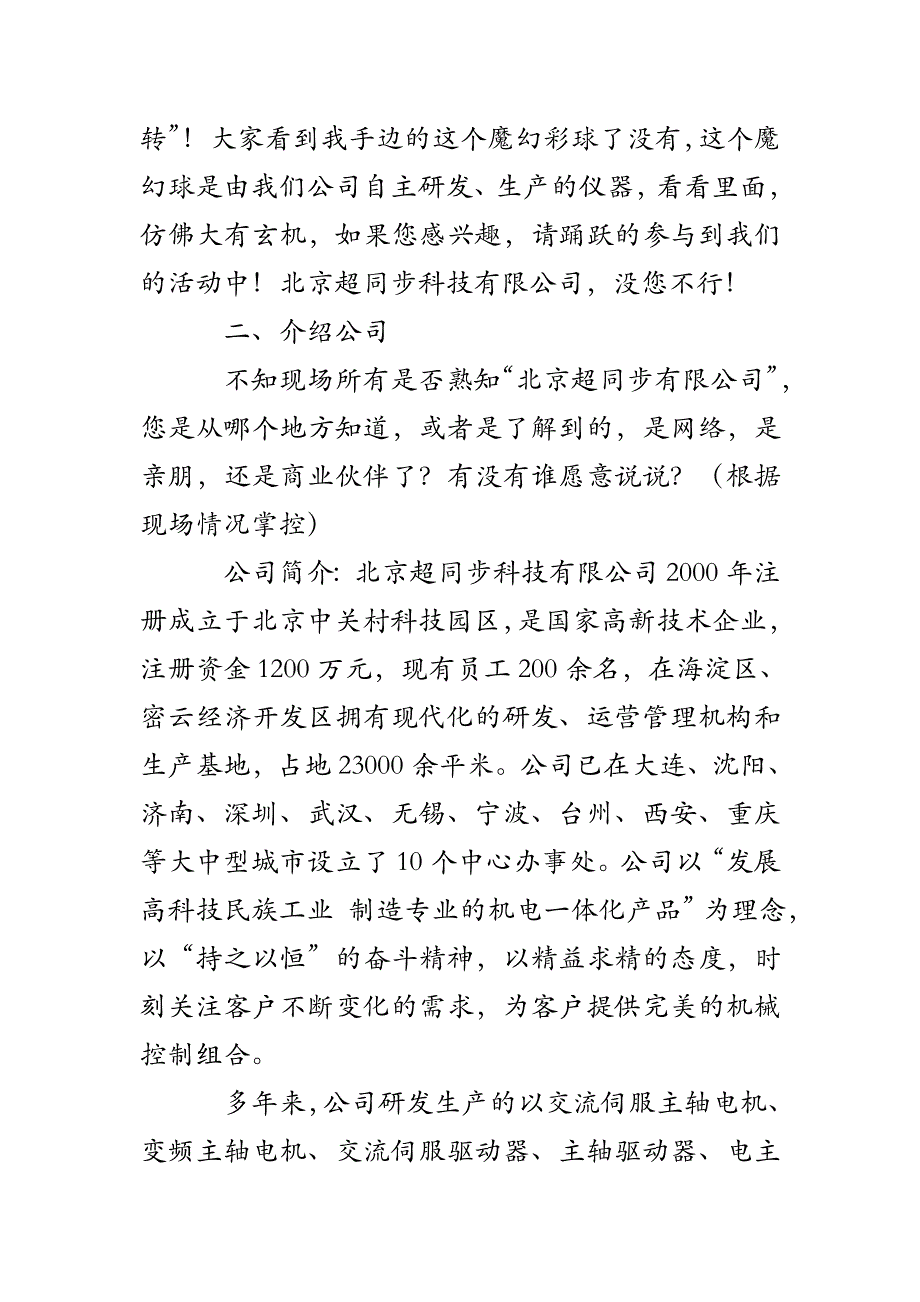 转”！大家看到我手边的这个魔幻彩球了没有，这个魔
幻球是由我们公司自主研发、生产的仪器，看看里面，
仿佛大有玄机，如果您感兴趣，请踊跃的参与到我们
的活动中！北京超同步科技有限公司，没您不行！
二、介绍公司
不知现场所有是否熟知“北京超同步有限公司”，
您是从哪个地方知道，或者是了解到的，是网络，是
亲朋，还是商业伙伴了？有没有谁愿意说说？（根据
现场情况掌控）
公司简介：北京超同步科技有限公司 2000 年注
册成立于北京中关村科技园区，是国家高新技术企业，
注册资金 1200 万元，现有员工 200 余名，在海淀区、
密云经济开发区拥有现代化的研发、运营管理机构和
生产基地，占地 23000 余平米。公司已在大连、沈阳、
济南、深圳、武汉、无锡、宁波、台州、西安、重庆
等大中型城市设立了 10 个中心办事处。公司以“发展
高科技民族工业 制造专业的机电一体化产品”为理念，
以“持之以恒”的奋斗精神，以精益求精的态度，时
刻关注客户不断变化的需求，为客户提供完美的机械
控制组合。
多年来，公司研发生产的以交流伺服主轴电机、
变频主轴电机、交流伺服驱动器、主轴驱动器、电主